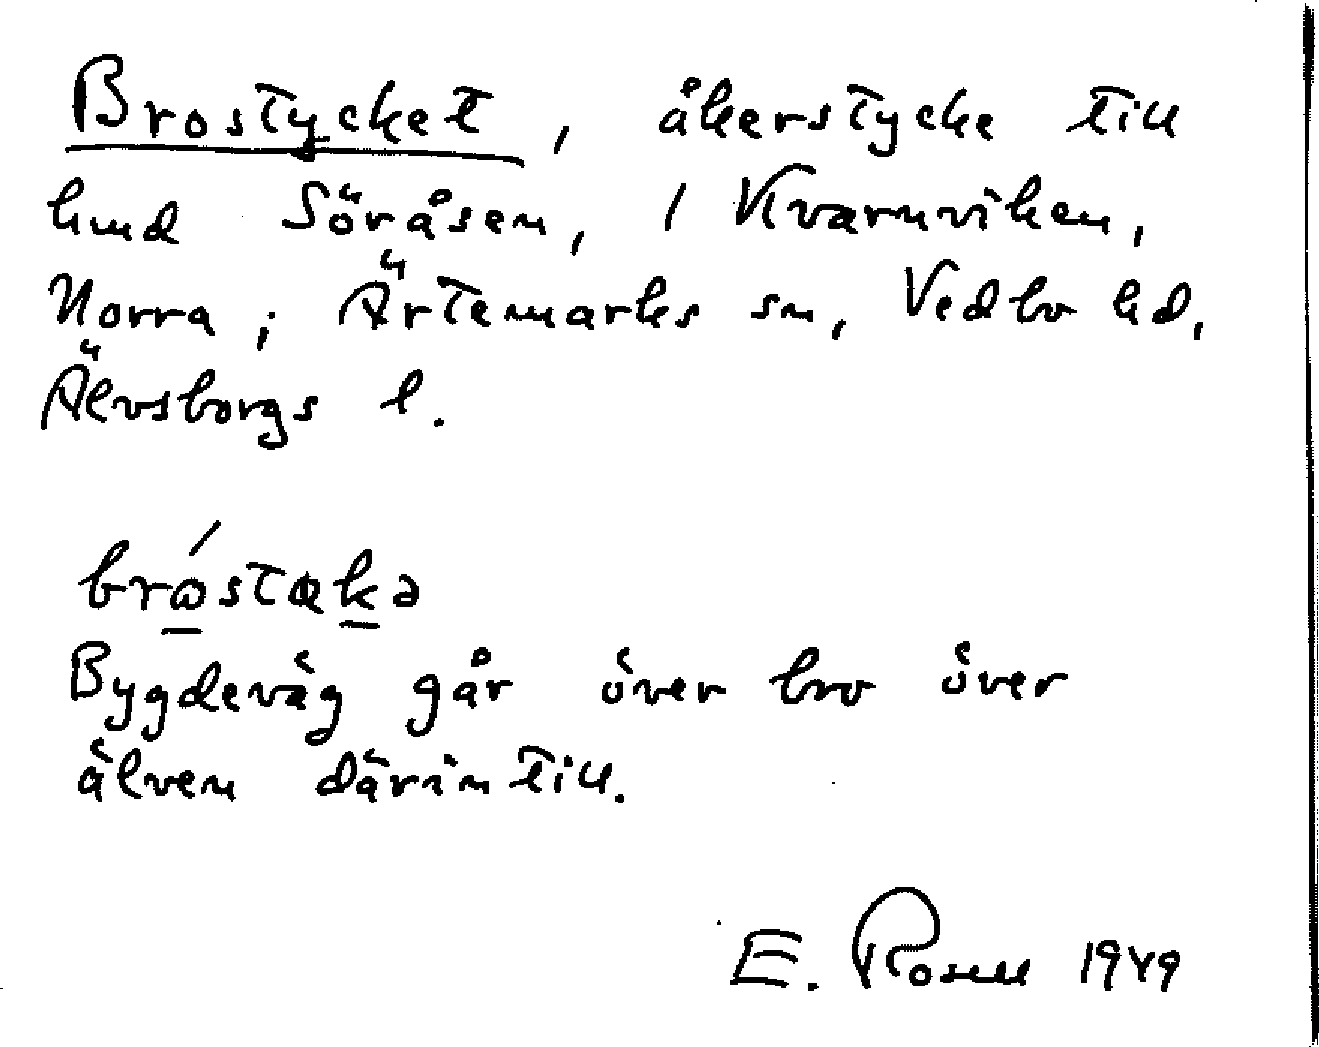 Brostycket, åkerstycke till
hmd Söråsen, 1 Kvarnviken,
Norra; Ärtemarks sn, Vedbo hd,
Älvsborgs l.
brós​tækə
Bygdeväg går över bro över
älven därintill.
E. Rosell 1949